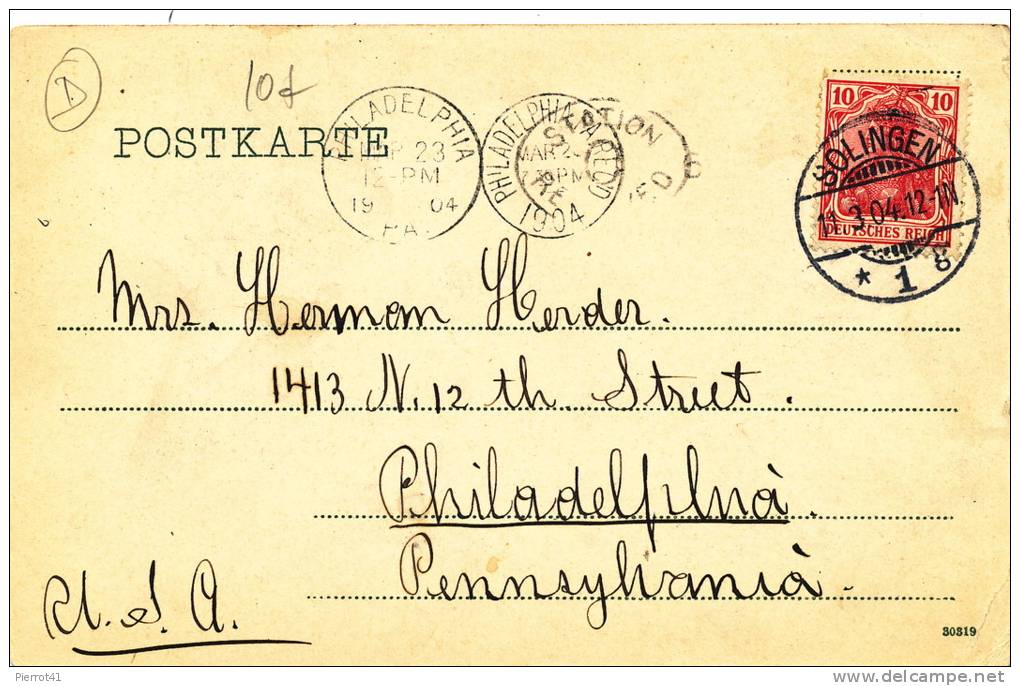 D
POSTKARTE
PHILADELPHIA
23
12-PM
19 04
PA.
PHILADELPHIA, PA. REC'D
MAR 2
PM
1904
STATION
10 10
DEUTSCHES REICH
SOLINGEN
11.3.04.12-1N.
* 1 g
Mrs. Herman Herder.
1413 N. 12 th. Street.
Philadelphia.
Pennsylvania.
U. S. A.
30319
Pierrot41
delcampe.net